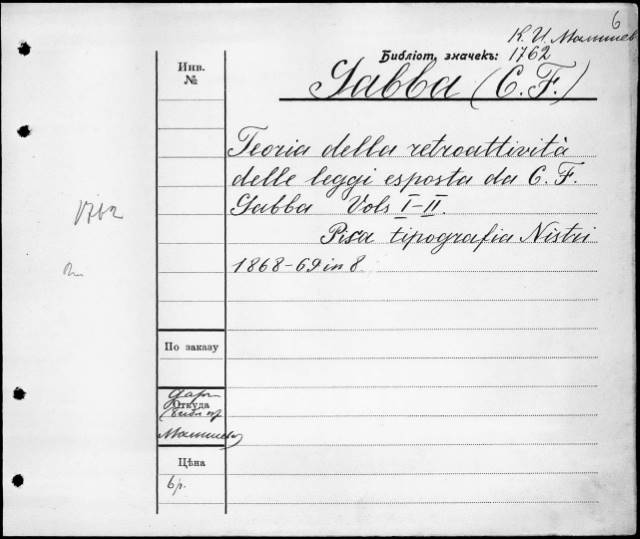 6
К. И. Малышев
Библіот. значекъ: 1762
Инв.
№
Gabba (C. F.)
Teoria della retroattività
delle leggi esposta da C. F.
Gabba Vols I-II.
Pisa tipografia Nistri
1868-69 in 8
1762
По заказу
Откуда
Малышев
Цѣна
6 р.